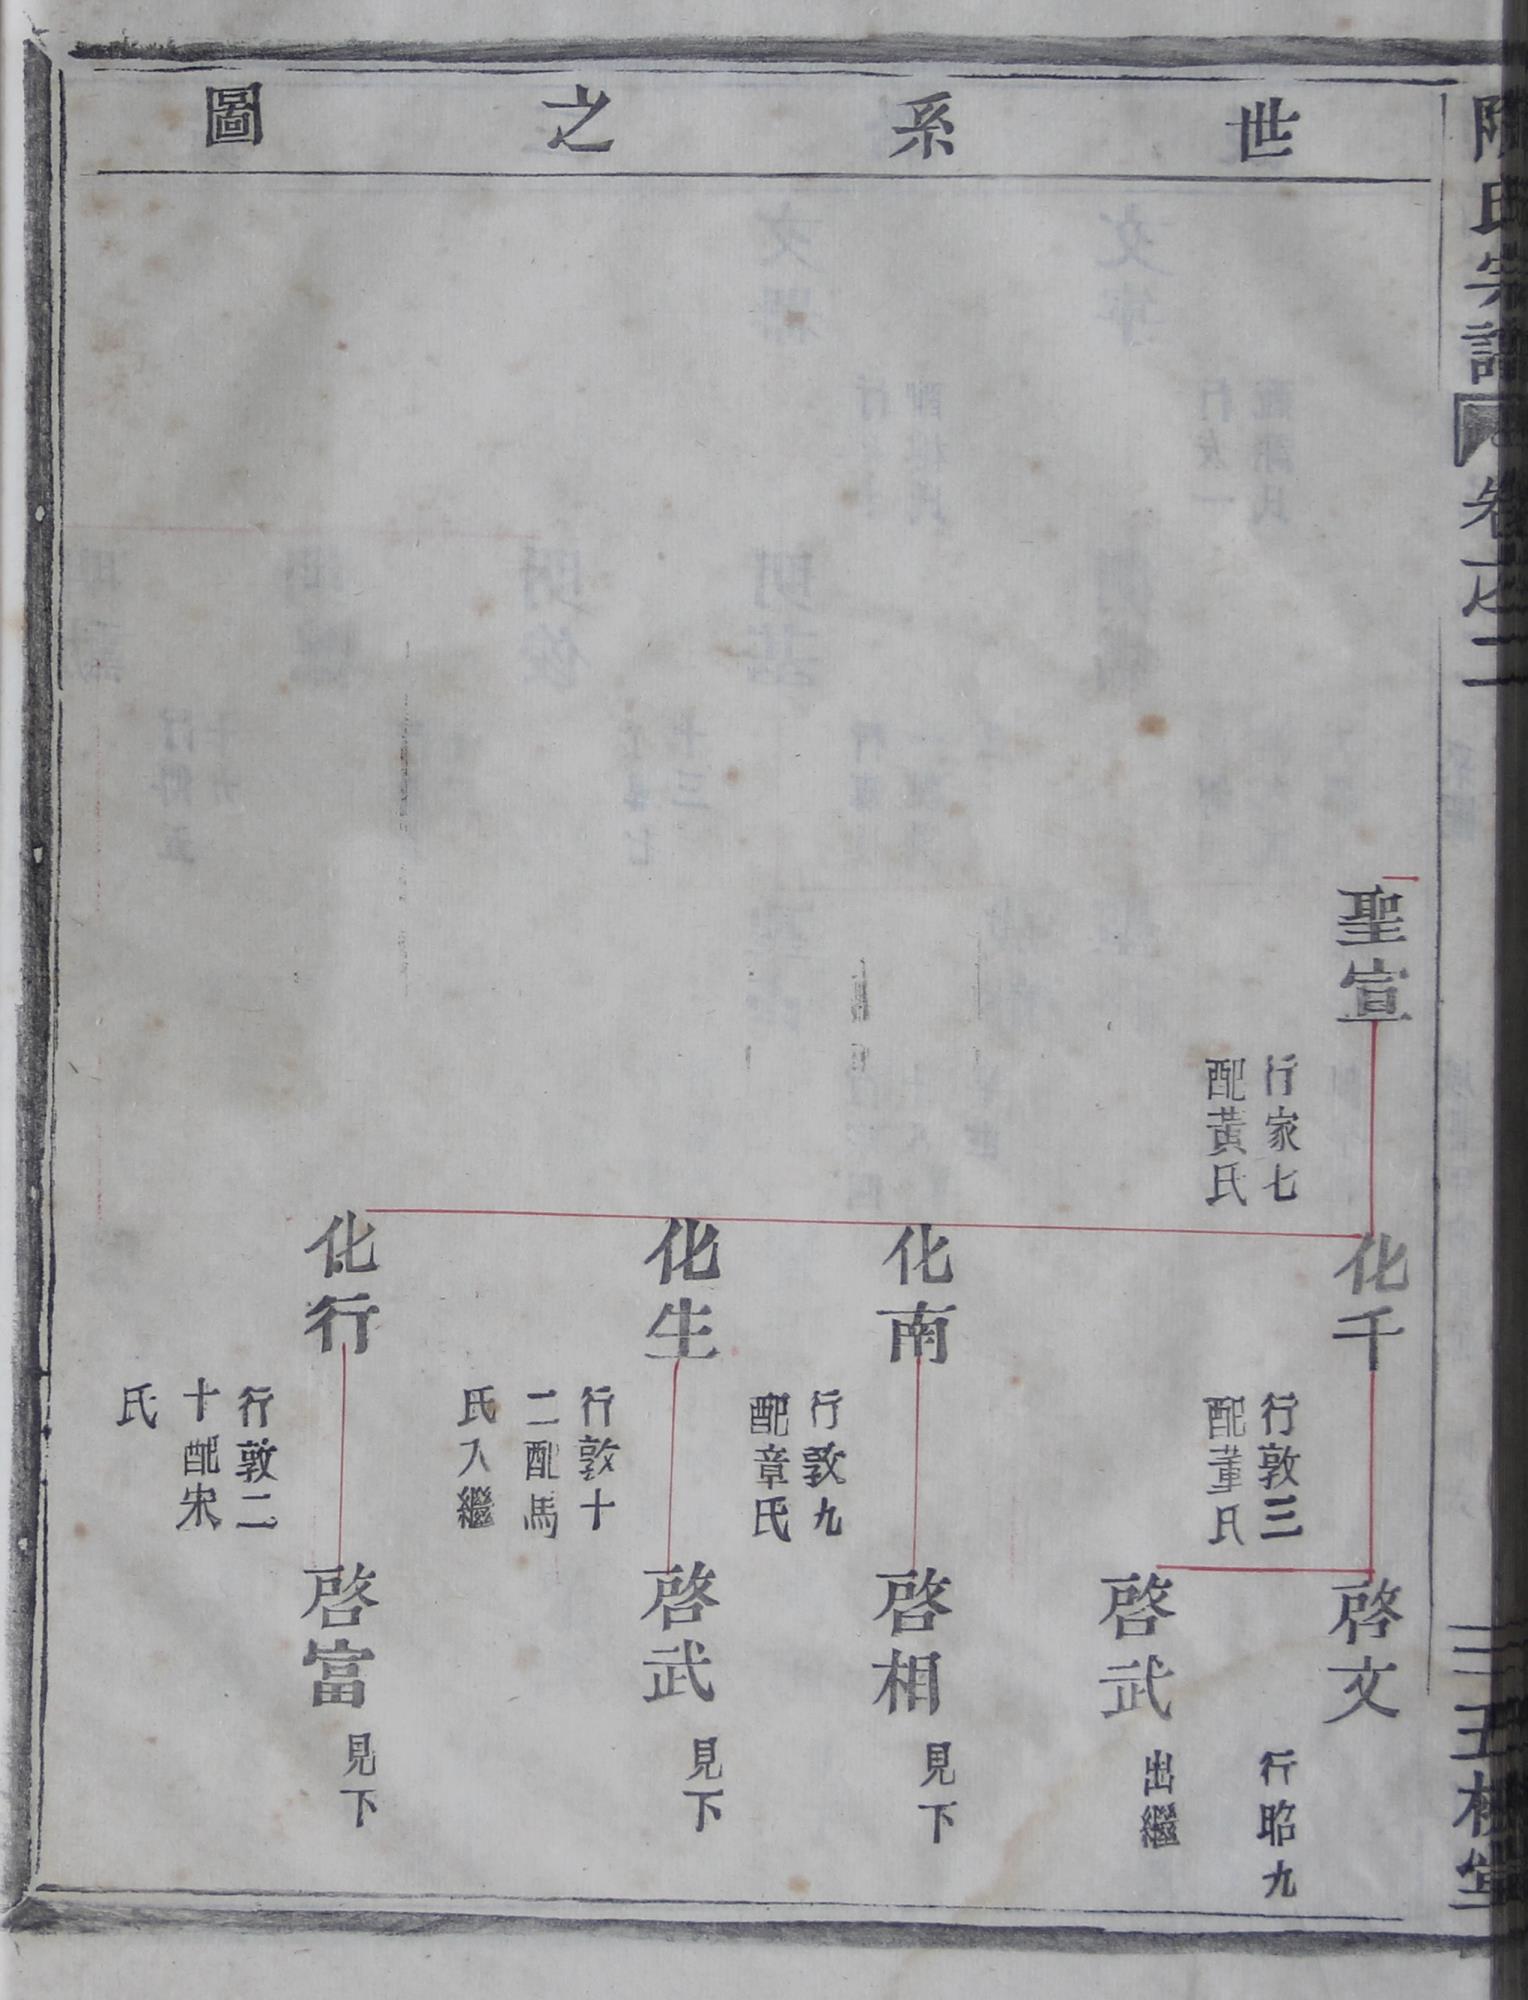 世系之圖
氏宗譜
卷之二
三
聖宣
行家七
配黃氏
化千
行敦三
配董氏
化南
行敦九
配章氏
化生
行敦十
二配馬
氏入繼
化行
行敦二
十配宋
氏
啓文
行昭九
啓武
出繼
啓相
見下
啓武
見下
啓富
見下